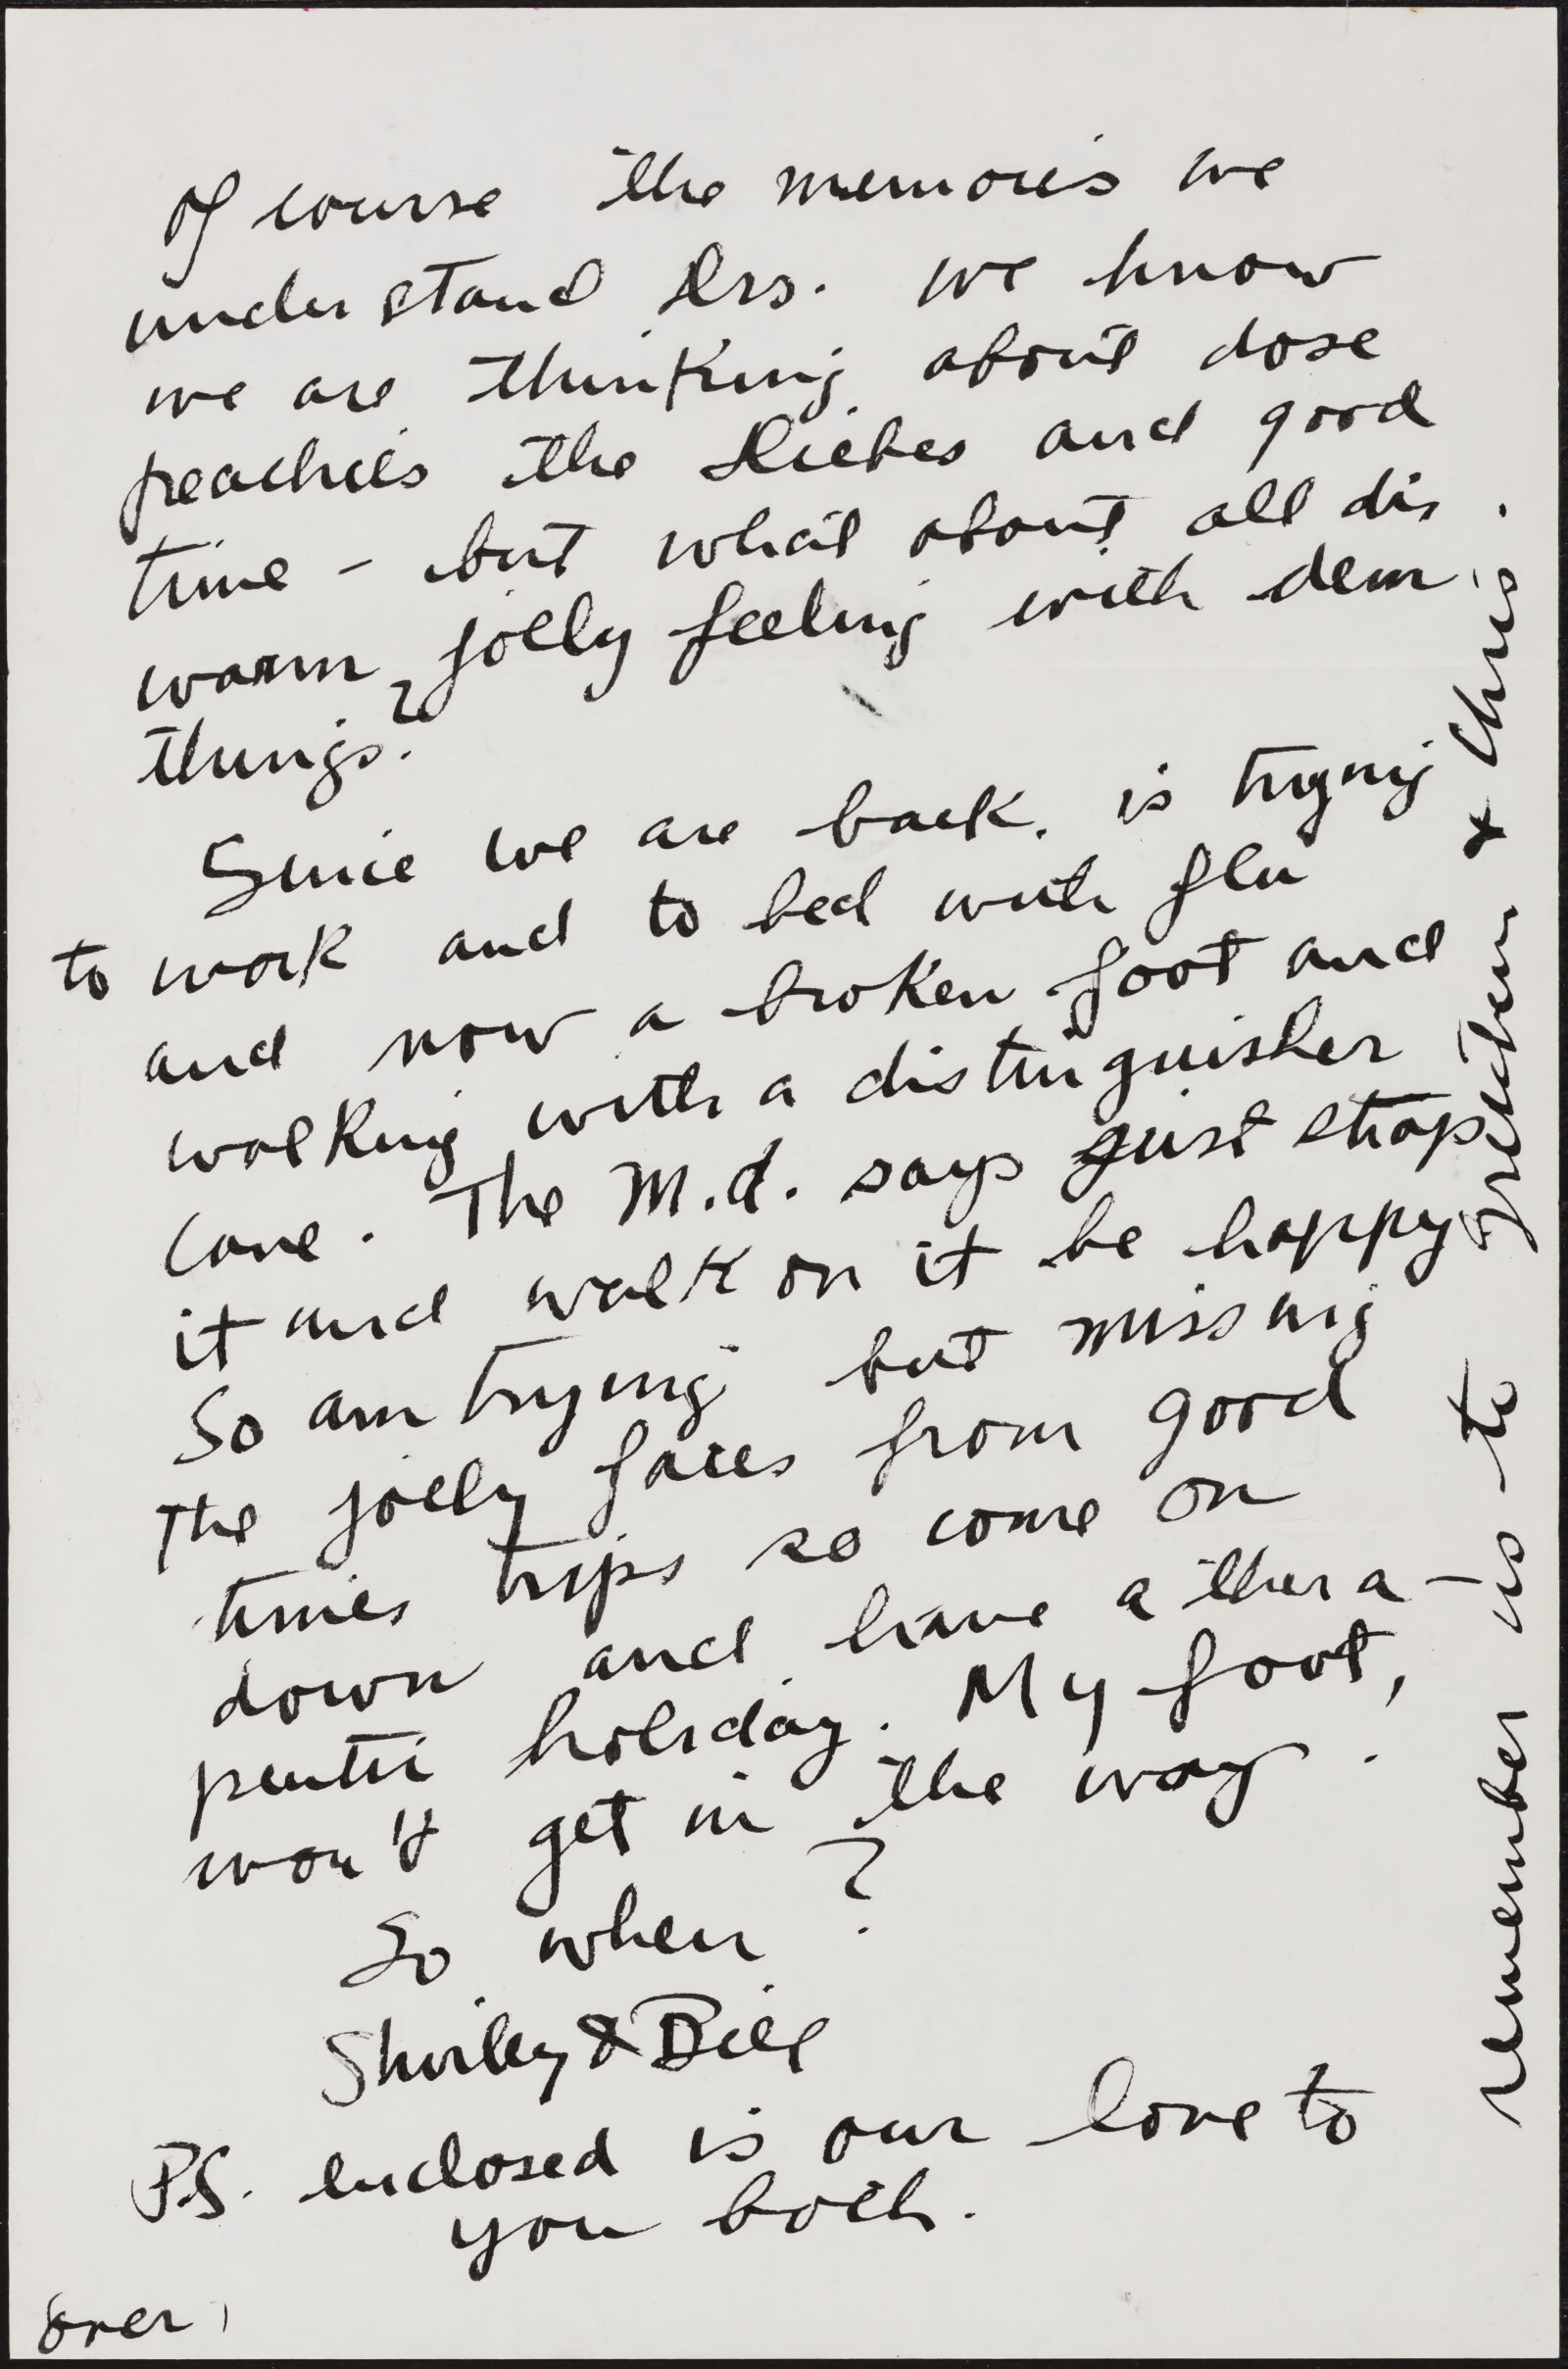 Of course the memories we
understand Drs. we know
we are thinking about dose
peachies the Liebes and good
time - but what about all dis
warm, jolly feeling with dem
things?
Since we are back. is trying
to work and to bed with flu
and now a broken foot and
walking with a distinguisher
cane. The M.d. says just strap
it and walk on it be happy
So am trying but missing
The jolly faces from good
times trips so come on
down and have a thera-
peutic holiday. My foot,
won't get in the way.
So when?
Shirley & Bill
P.S. enclosed is our love to
you both.
over,
remember us to Gretchen & Chris.